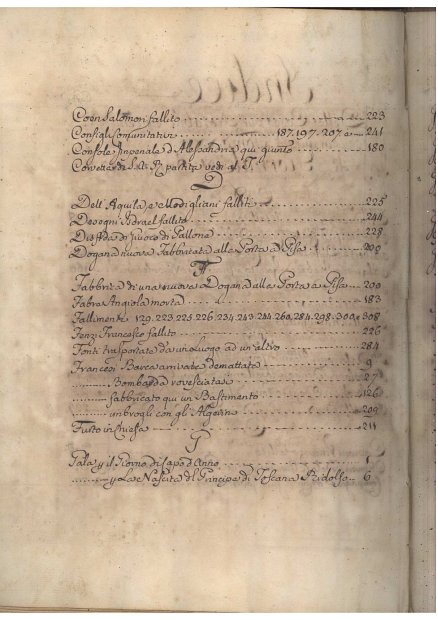 Coen Salomon fallito 223
Consigli Comunitativi 187. 197. 207. e 241
Console Imperiale d'Alessandria qui giunto 180
Corvetta di S. A. R. partita vedi al T.
D
Dell'Aquila, e Modigliani falliti 225
Desegni Isdrael fallito 244
Disfida di Giuoco di Pallone 228
Dogana nuova Fabbricata alla Porta a Pisa 200
F
Fabbrica di una nuova Dogana alla Porta a Pisa 200
Fabre Angiola morta 183
Fallimenti 129. 223. 225. 226. 234. 243. 244. 260. 284. 298. 300. e 308
Fenzi Francesco fallito 226
Fonti trasportate da un Luogo ad un'altro 284
Francesi Barca arrivata demattata 9
Bombarda rovesciatasi 27
fabbricato qui un Bastimento 126
imbrogli con gli Algerini 209
Furto in Chiesa 211
G
Gala p il Giorno di Capo d'Anno 1
p La Nascita del Principe di Toscana Ridolfo 6